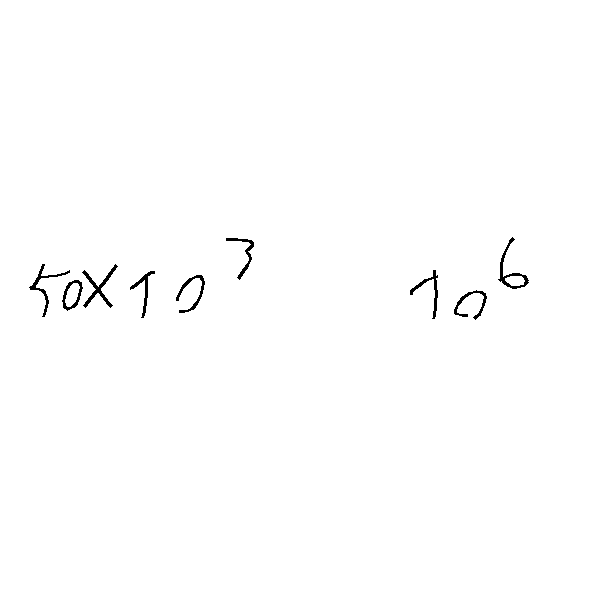 50×10³ 10⁶